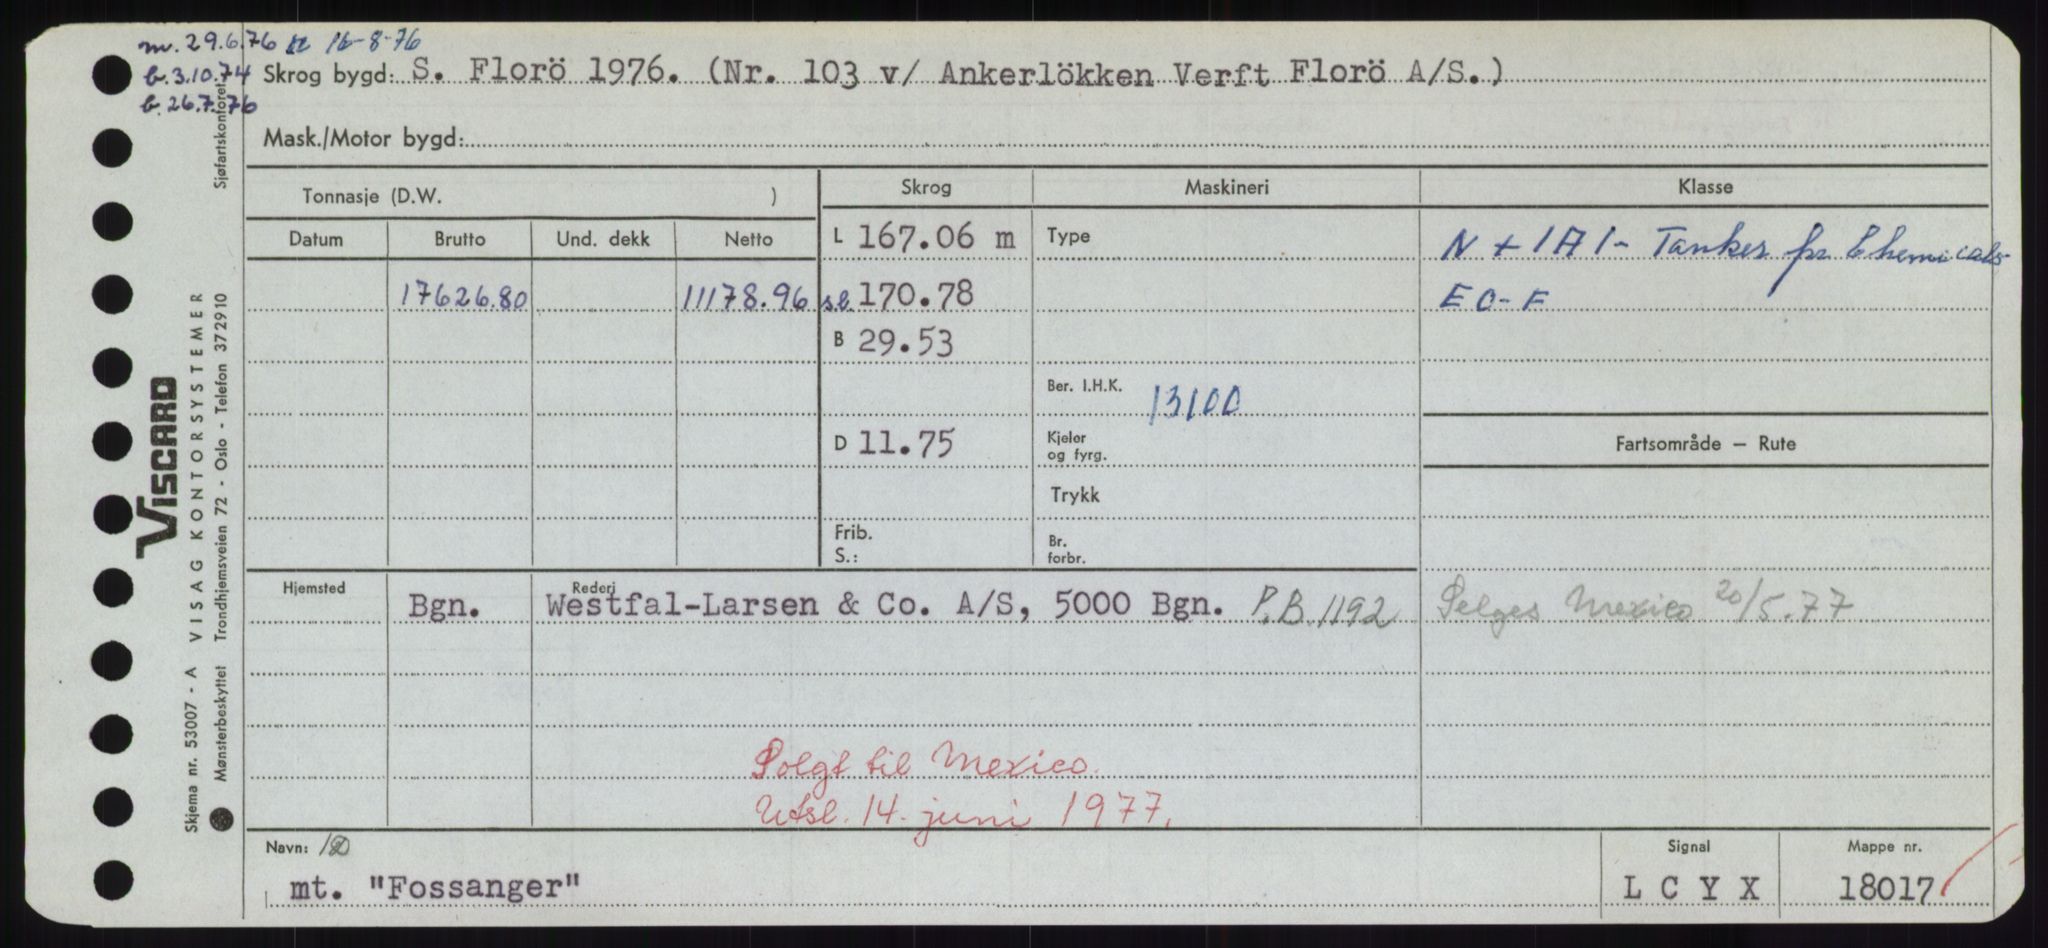 m. 29.6.76 16-8-76
b. 3.10.74 Skrog bygd: S. Florö 1976. (Nr. 103 v/ Ankerlökken Verft Florö A/S.)
b. 26.7.76
Mask./Motor bygd:
Tonnasje (D.W. )
Skrog
Maskineri
Klasse
Datum Brutto Und. dekk Netto
L 167.06 m
Type
N + 1A1 - Tanker for Chemicals
17626.80 11178.96
s.l. 170.78
EO-F
B 29.53
Ber. I.H.K. 13100
D 11.75
Kjeler
og fyrg.
Fartsområde — Rute
Trykk
Frib.
S.:
Br.
forbr.
Hjemsted
Rederi
Bgn. Westfal-Larsen & Co. A/S, 5000 Bgn. P.B. 1192
Selges Mexico 20/5.77
Solgt til Mexico.
Utsl. 14. juni 1977.
Navn:
mt. "Fossanger"
Signal
L C Y X
Mappe nr.
18017
VISCARD
Skjema nr. 53007 - A VISAG KONTORSYSTEMER
Mønsterbeskyttet Trondhjemsveien 72 - Oslo - Telefon 372910
Sjøfartskontoret